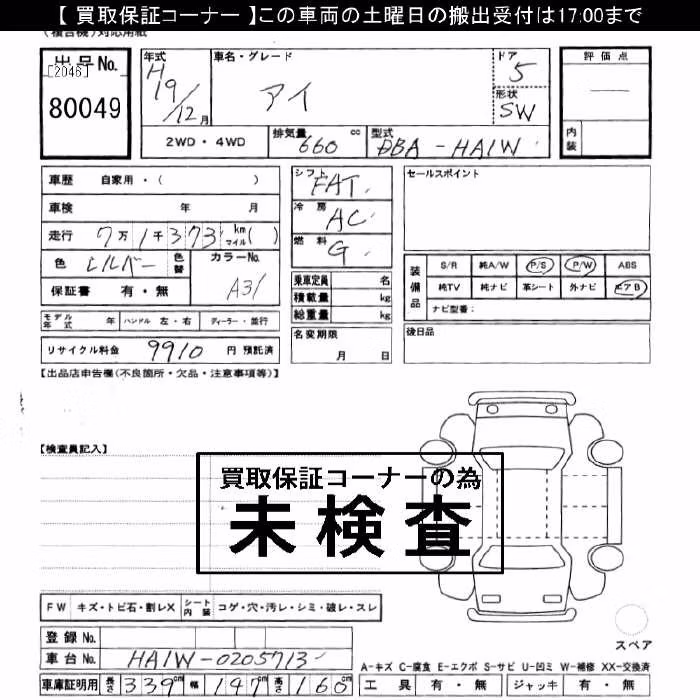 【 買取保証コーナー 】この車両の土曜日の搬出受付は17:00まで
(複合機)対応用紙
出品No.
[2046]
80049
年式
H
19/12月
車名・グレード
アイ
ドア
5
形状
SW
評価点
内装
2WD・4WD
排気量
660 cc
型式
DBA-HA1W
車歴 自家用・( )
車検 年 月
走行 7万1千373 km マイル( )
色
シルバー
色替
カラーNo.
A31
保証書 有・無
シフト
FAT
冷房
AC
燃料
G
乗車定員 名
積載量 kg
総重量 kg
セールスポイント
装備品
S/R 純A/W P/S P/W ABS
純TV 純ナビ 革シート 外ナビ エアB
ナビ型番:
モデル年式 年 ハンドル 左・右 ディーラー・並行
リサイクル料金 9910 円 預託済
名変期限
月 日
後日品
【出品店申告欄(不良箇所・欠品・注意事項等)】
【検査員記入】
買取保証コーナーの為
未検査
FW キズ・トビ石・割レX シート内装 コゲ・穴・汚レ・シミ・破レ・スレ
登録No.
車台No. HA1W-0205713
車庫証明用 長さ 339cm 幅 147cm 高さ 160cm
スペア
A-キズ C-腐食 E-エクボ S-サビ U-凹ミ W-補修 XX-交換済
工具 有・無 ジャッキ 有・無